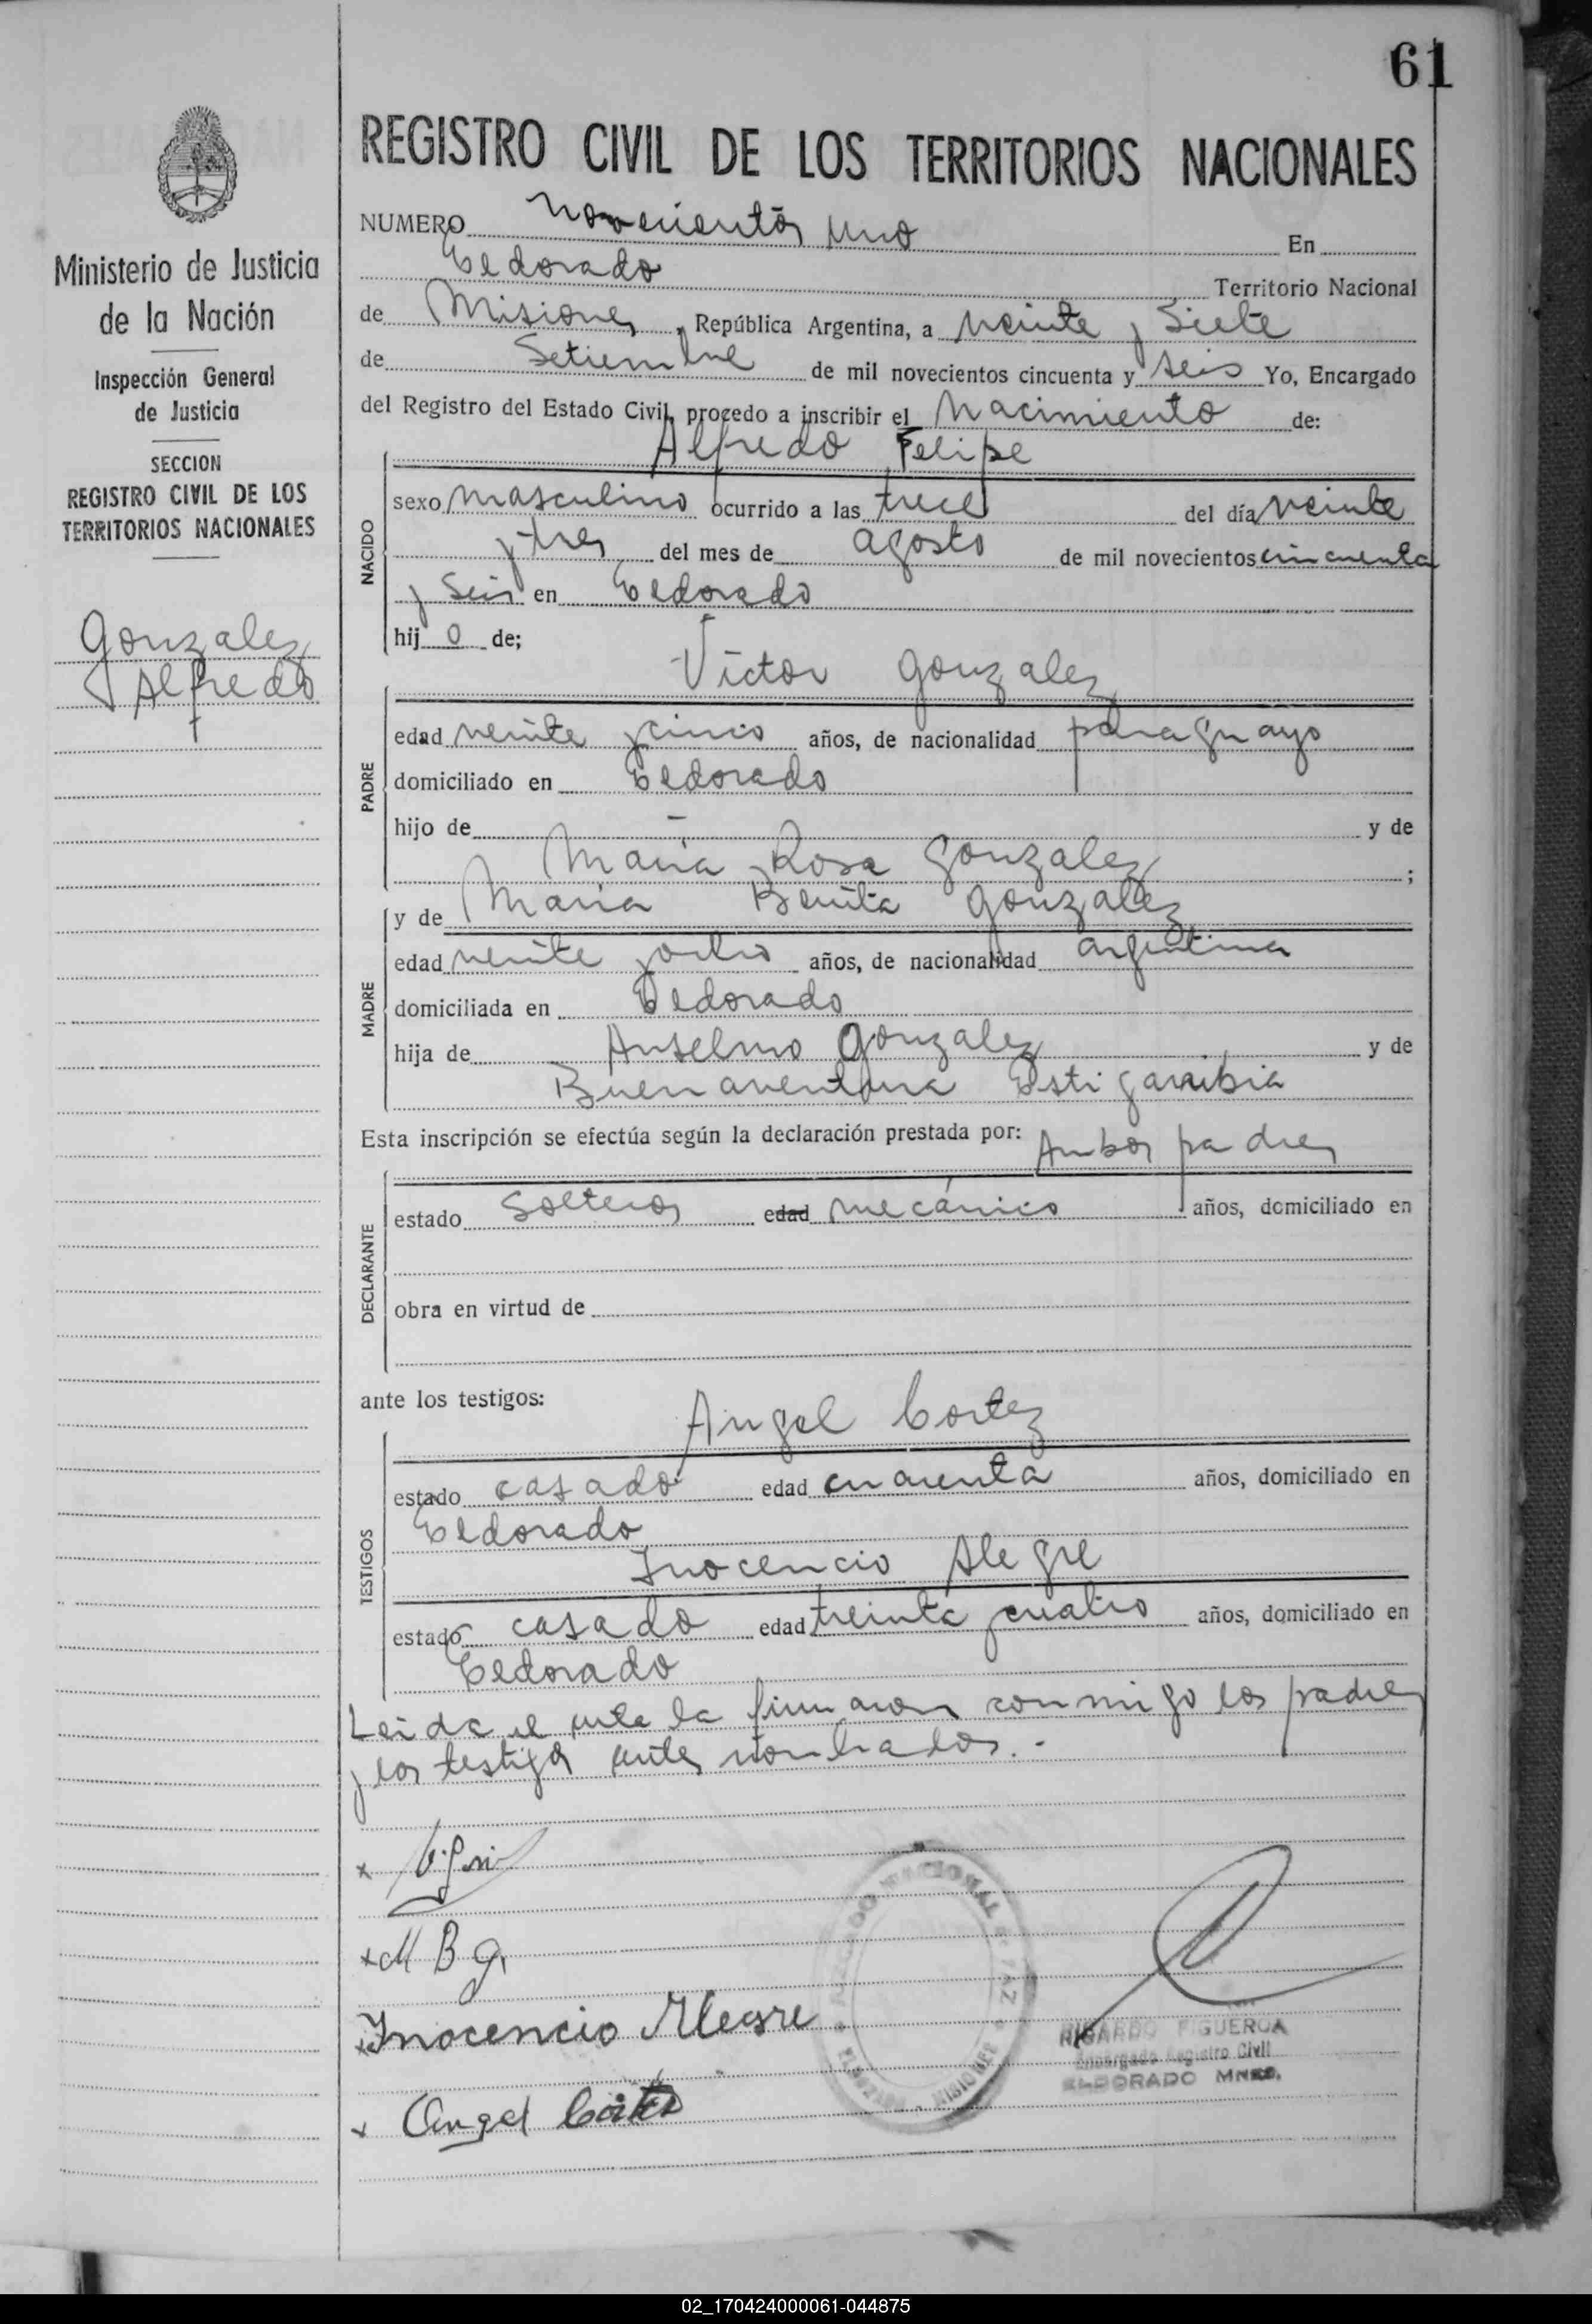 61
REGISTRO CIVIL DE LOS TERRITORIOS NACIONALES
Ministerio de Justicia
de la Nación
Inspección General
de Justicia
SECCION
REGISTRO CIVIL DE LOS
TERRITORIOS NACIONALES
Gonzalez
Alfredo
NUMERO novecientos uno En
Eldorado Territorio Nacional
de Misiones, República Argentina, a veinte y siete
de Setiembre de mil novecientos cincuenta y seis Yo, Encargado
del Registro del Estado Civil, procedo a inscribir el nacimiento de:
Alfredo Felipe
NACIDO
sexo masculino ocurrido a las trece del día veinte
y tres del mes de agosto de mil novecientos cincuenta
y seis en Eldorado
hijo de;
Víctor Gonzalez
PADRE
edad veinte y cinco años, de nacionalidad paraguayo
domiciliado en Eldorado
hijo de — y de
Maria Rosa Gonzalez ;
y de Maria Benita Gonzalez
MADRE
edad veinte y ocho años, de nacionalidad argentina
domiciliada en Eldorado
hija de Anselmo Gonzalez y de
Buenaventura Estigarribia
Esta inscripción se efectúa según la declaración prestada por: Ambos padres
DECLARANTE
estado solteros edad mecánico años, domiciliado en
obra en virtud de
ante los testigos:
Angel Cortez
TESTIGOS
estado casado edad cuarenta años, domiciliado en
Eldorado
Inocencio Alegre
estado casado edad treinta y cuatro años, domiciliado en
Eldorado
Leida el acta la firmaron conmigo los padres
y los testigos antes nombrados.-
x
x M B G.
x Inocencio Alegre
x Angel Cortez
JUZGADO NACIONAL DE PAZ
ELDORADO - MISIONES
RICARDO FIGUEROA
Encargado Registro Civil
ELDORADO MNES.
02_170424000061-044875